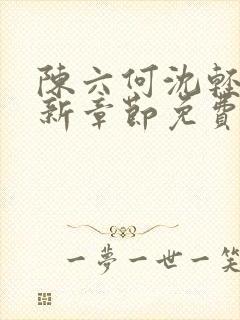 陳六何沈輕
新章節免費
一夢一世一笑